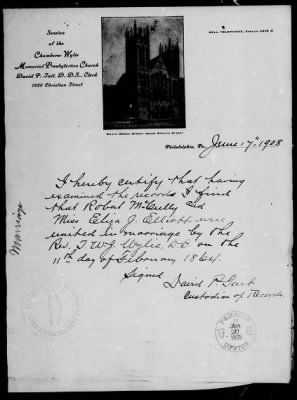 Session
of the
Chambers-Wylie
Memorial Presbyterian Church
David P. Tait, D.D.S., Clerk
1924 Christian Street
BELL TELEPHONE,
SOUTH BROAD STREET BELOW SPRUCE STREET
Philadelphia, Pa. June 17th 1908
I hereby certify that having
examined the records I find
that Robert McCully and
Miss Eliza J. Elliott were
united in marriage by the
Rev. T. W. J. Wylie, D.D. on the
11th day of February 1864.
Signed
David P. Tait
Custodian of Records
Marriage
PENSION
OFFICE